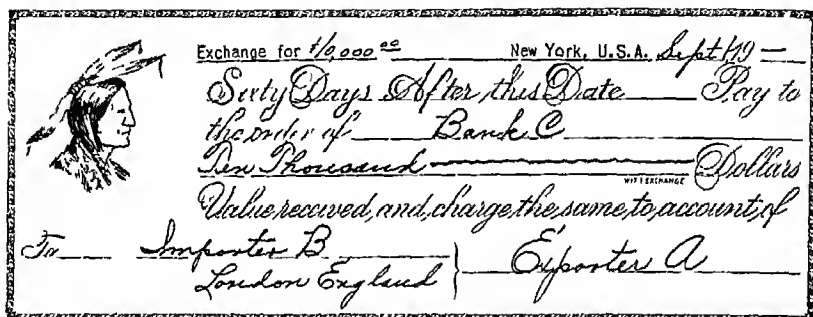 Exchange for $10,000 00 New York, U.S.A. Sept 1 19 —
Sixty Days After this Date Pay to
the order of Bank C
Ten Thousand Dollars
WITH EXCHANGE
Value received, and charge the same to account of
To Importer B
London England
Exporter A